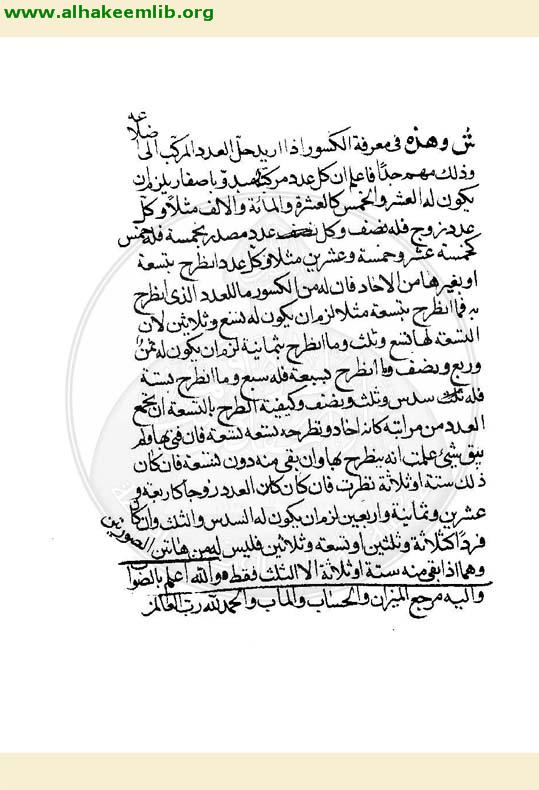 www.alhakeemlib.org
ش وهذه فى معرفة الكسور اذا اريد حل العدد المركب الى اضلاعه
وذلك مهم جدا فاعلم ان كل عدد مركب مبدو باصفار يلزم ان
يكون له العشر والخمس كالعشرة والمائة والالف مثلا وكل
عدد زوج فله نصف وكل عدد مصدر بخمسة فله خمس
كخمسة عشر وخمسة وعشرين مثلا وكل عدد انطرح بتسعة
او بغيرها من الاحاد فان له من الكسور ما للعدد الذى انطرح
به فما انطرح بتسعة مثلا لزم ان يكون له تسع وثلاثين لان
التسعة لها تسع وثلث وما انطرح بثمانية لزم ان يكون له ثمن
وربع ونصف وما انطرح بسبعة فله سبع وما انطرح بستة
فله سدس وثلث ونصف وكيفية الطرح بالتسعة ان يجمع
العدد من مراتبه كانه احاد وتطرحه تسعة تسعة فان فنى بها ولم
يبق شيئ علمت انه ينطرح بها وان بقى منه دون تسعة فان كان
ذلك ستة او ثلاثة نظرت فان كان العدد زوجا كاربعة و
عشرين وثمانية واربعين لزم ان يكون له السدس والثلث وان كان
فردا كثلاثة وثلثين او تسعة وثلاثين فليس له من هاتين الصورتين
وهما اذا بقى منه ستة او ثلاثة الا الثلث فقط والله اعلم بالصواب
واليه مرجع الميزان والحساب والماب والحمد لله رب العالمين